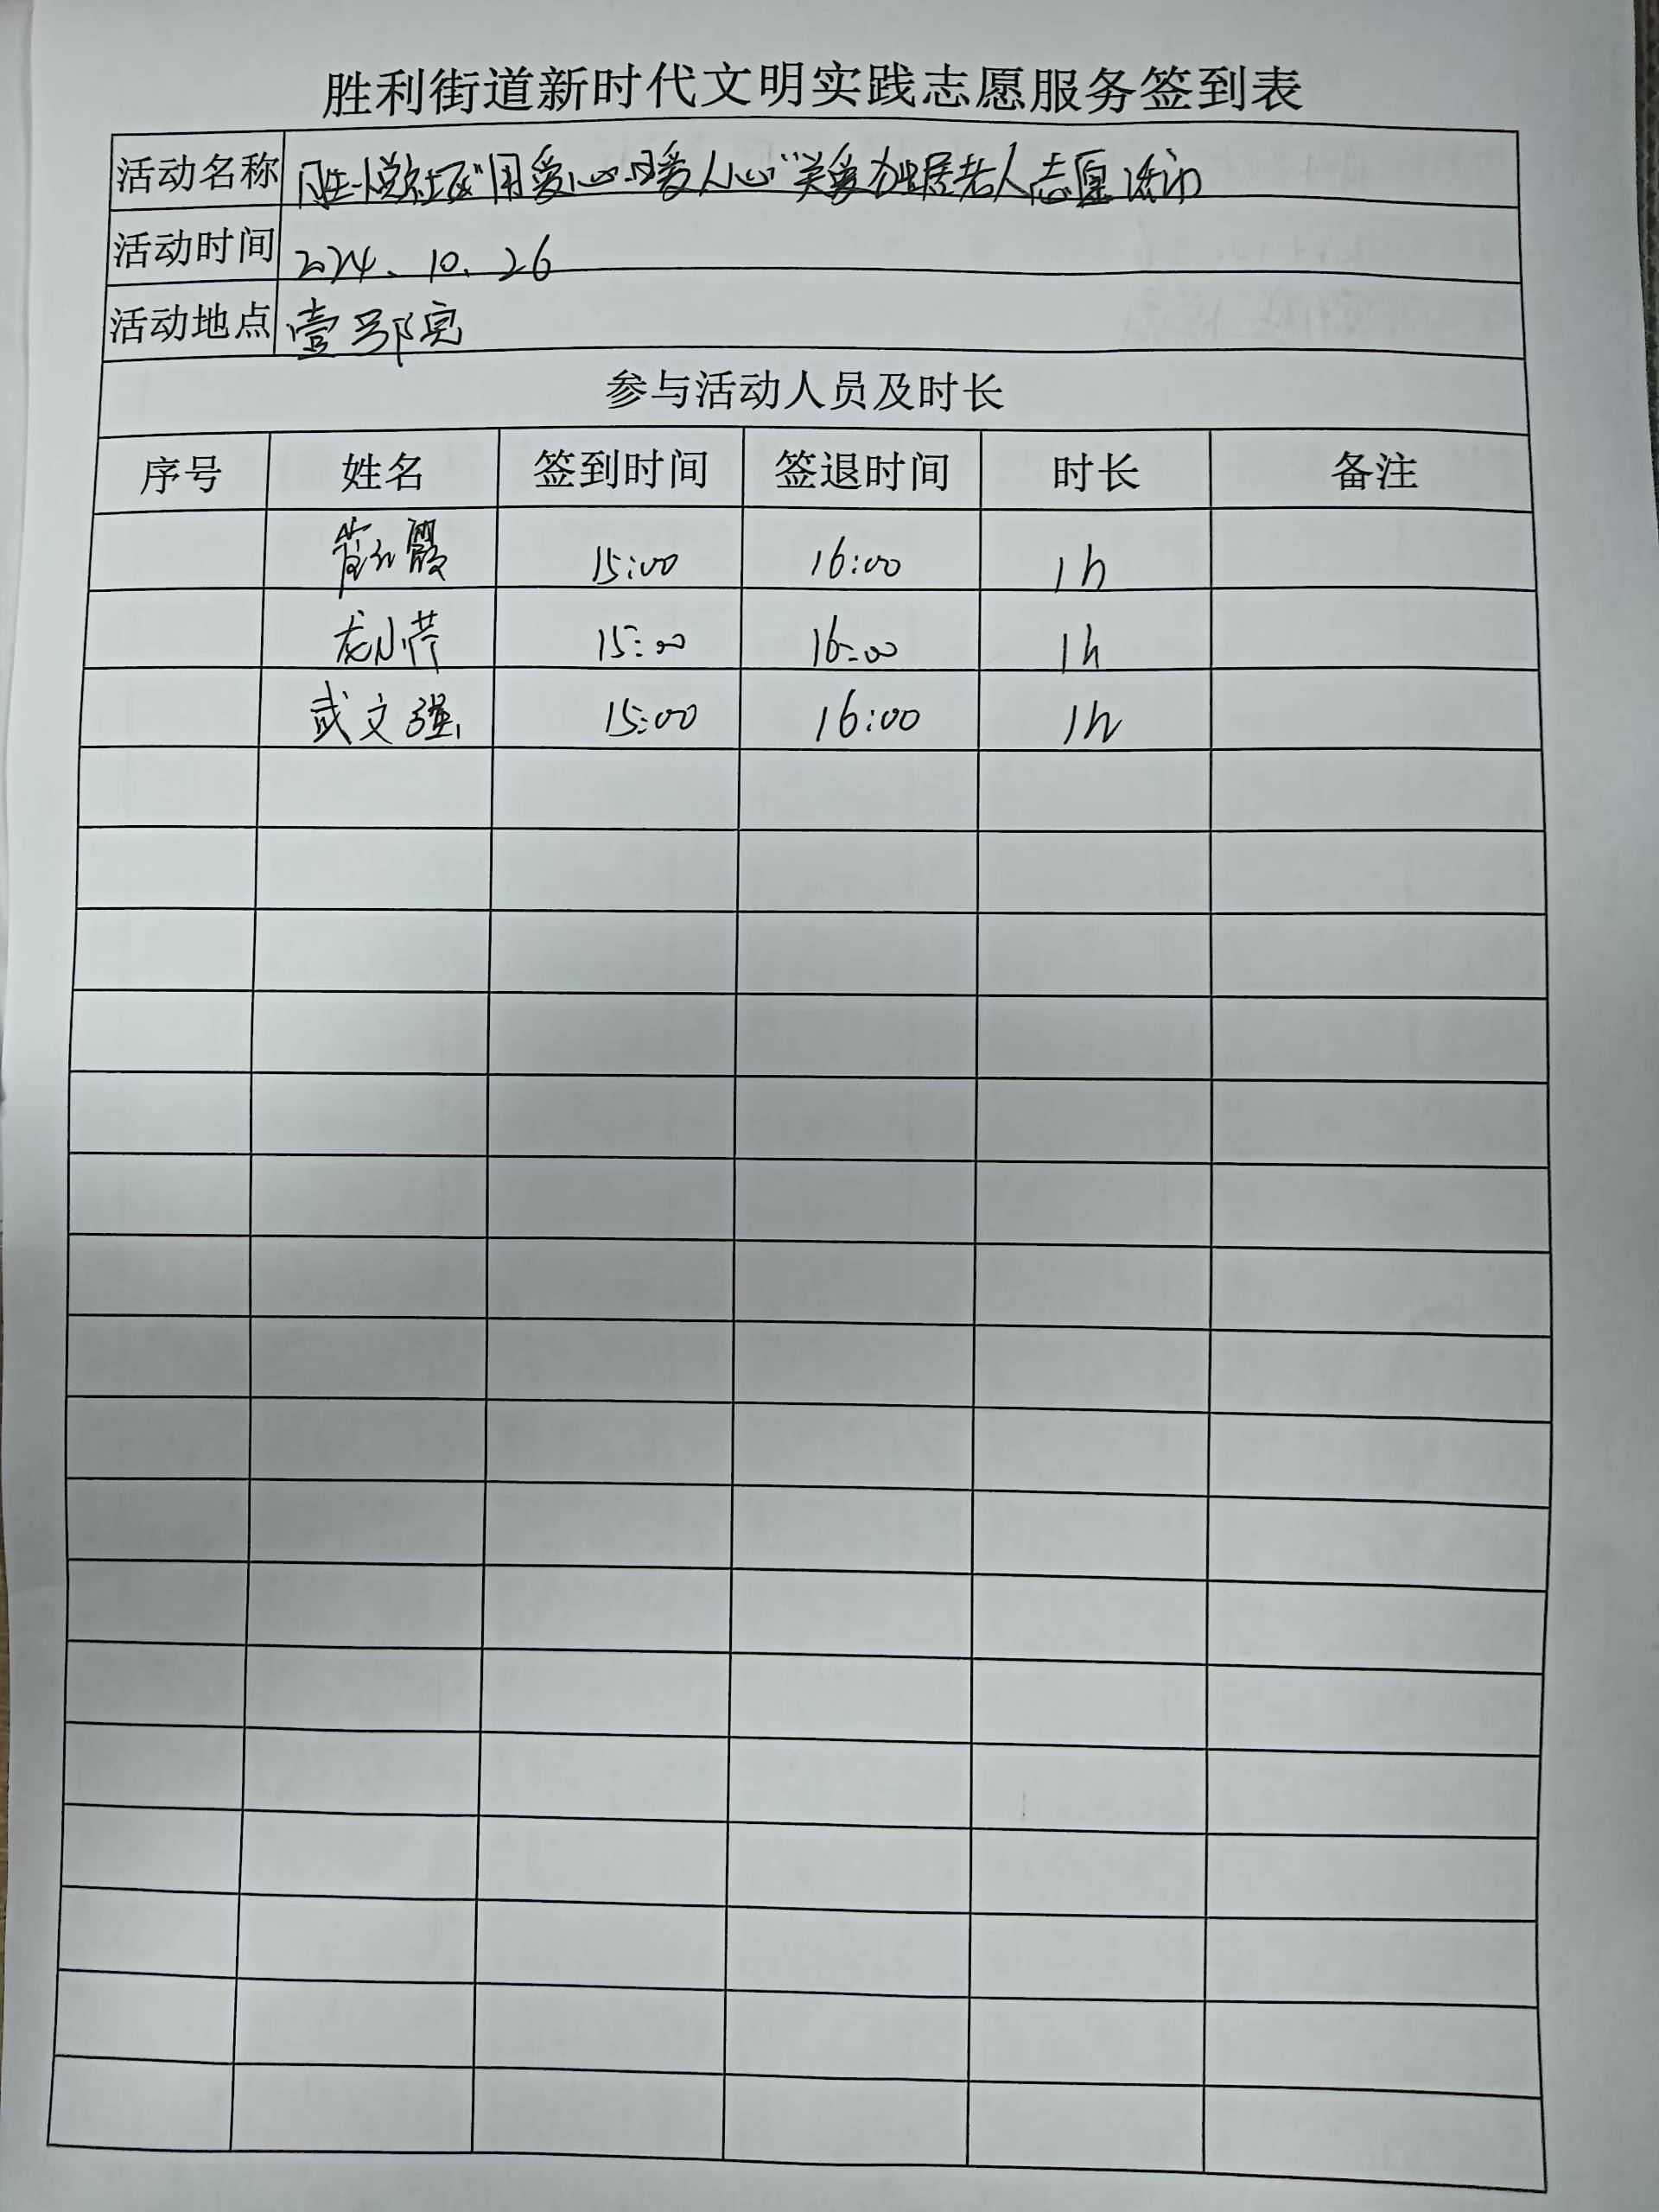 胜利街道新时代文明实践志愿服务签到表
活动名称 "用爱心 暖人心"关爱独居老人志愿活动
活动时间 2024、10、26
活动地点 壹
参与活动人员及时长
序号 姓名 签到时间 签退时间 时长 备注
霞 15:00 16:00 1h
龙小 15:00 16:00 1h
武文强 15:00 16:00 1h